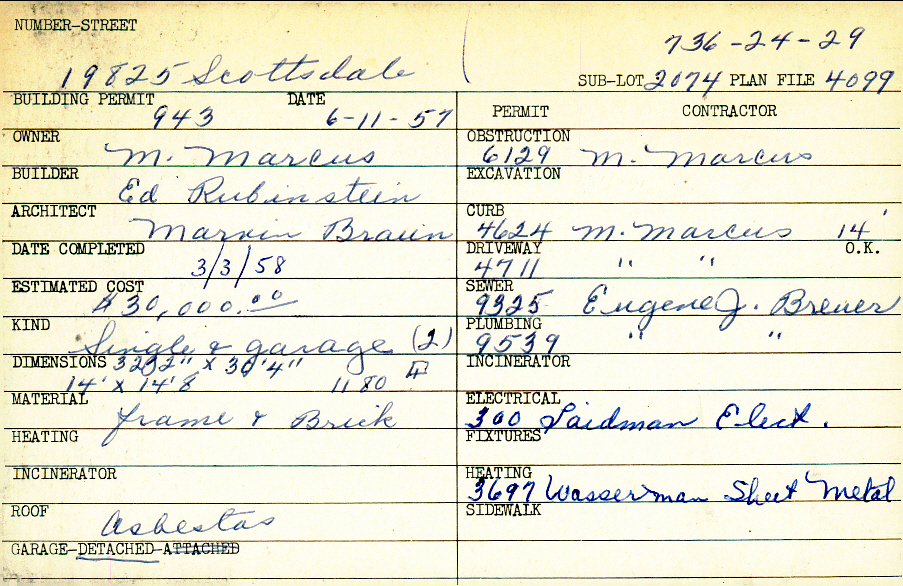 NUMBER-STREET
736-24-29
19825 Scottsdale
SUB-LOT 2074 PLAN FILE 4099
BUILDING PERMIT DATE
943 6-11-57
PERMIT CONTRACTOR
OWNER
M. Marcus
OBSTRUCTION
6129 M. Marcus
BUILDER
Ed Rubinstein
EXCAVATION
ARCHITECT
Marvin Braun
CURB
4624 M. Marcus 14'
O.K.
DATE COMPLETED
3/3/58
DRIVEWAY
4711 " "
ESTIMATED COST
$30,000.00
SEWER
9325 Eugene J. Brewer
KIND
Single & garage (2)
PLUMBING
9539 " "
DIMENSIONS x 30'4"
14' x 14'8 1180
INCINERATOR
MATERIAL
frame & Brick
ELECTRICAL
300 Saidman Elect.
HEATING
FIXTURES
INCINERATOR
HEATING
3697 Wasserman Sheet Metal
ROOF
asbestos
SIDEWALK
GARAGE-DETACHED-ATTACHED